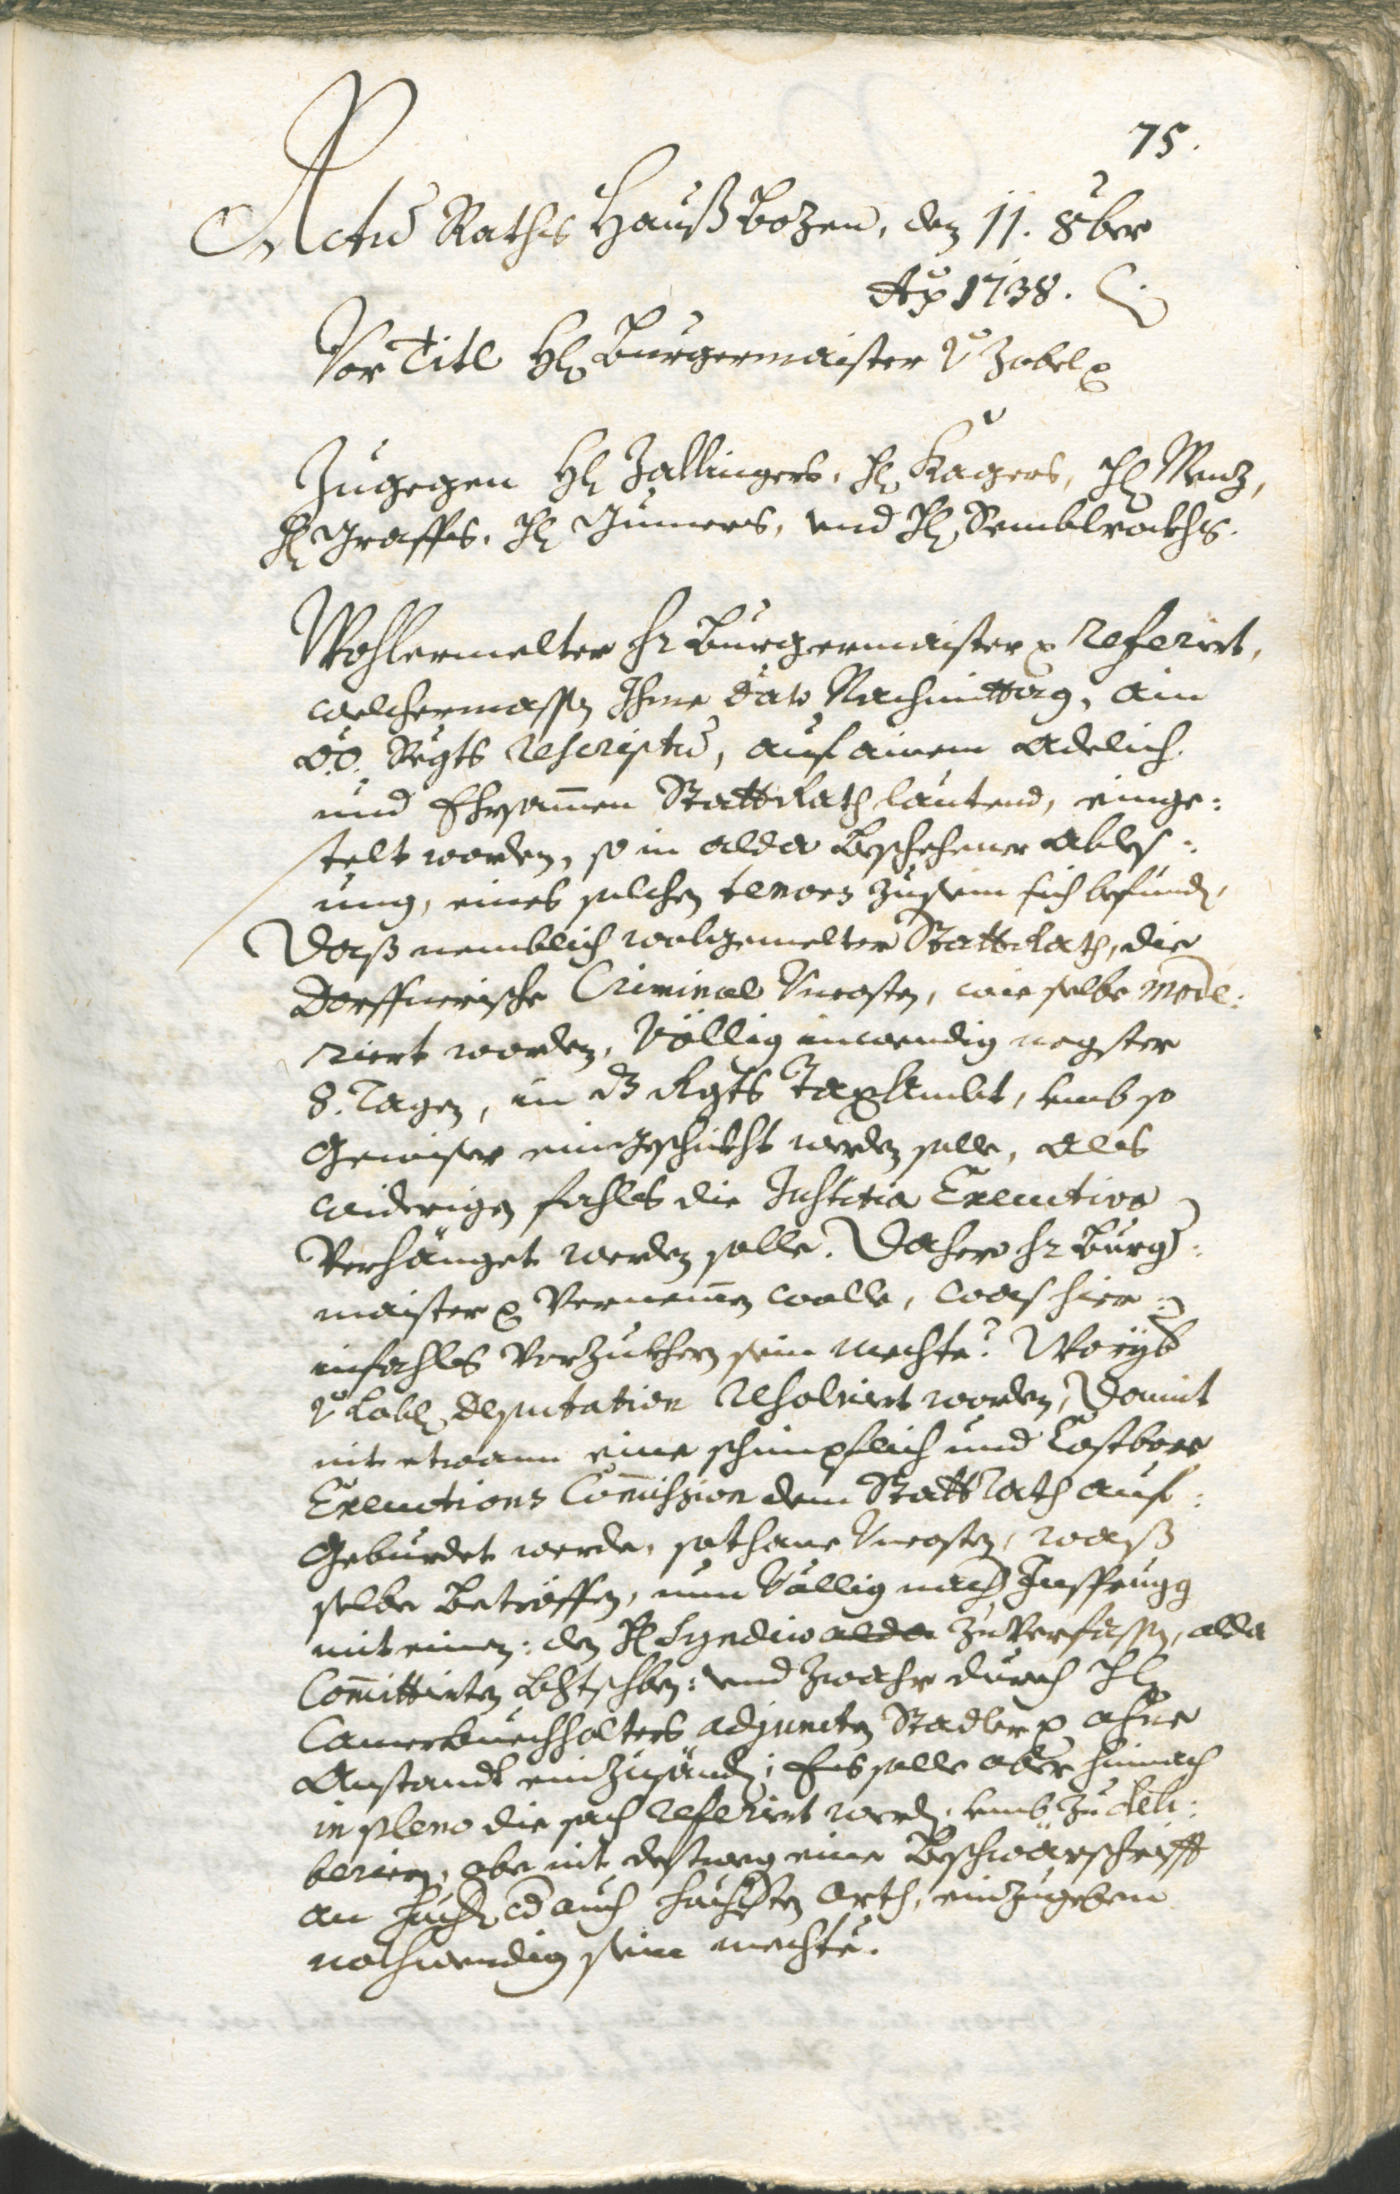 75.
Actũ Raths Hauß Bozen, den 11. 8ber
Aõ 1738.
Vor Titl H: Burgermaister v Zobel
Zugegen H: Zallingers, H: Kagers, H: Menz,
H: Graffs, H: Gumers, und H: Semblrockhs.
Wohlermelter Hr Burgermaister referirt,
welchermassen Ihme dato Nachmittag, ain
O:Ö: Regts rescriptũ, auf ainem Adelich
und Ehrsamen StattRath lautend, einge:
telt worden, so in alda beschehener ables:
ung, eines solchen tenors zusein sich befunden,
Daß nemblich wolgemelter StattRath, die
Dorffnerische Criminal Uncosten, wie selbe mode:
riert worden, völlig inwendig negster
8. Tagen, in das Rgts TaxAmbt, umb so
gewiser eingeschickht werden solle, als
widerigen fahls die Justitia Executiva
verhänget werden solle. Daher Hr Burger:
maister vernemen wolle, was hier:
infahls vorzukhern sein mechte? Woryber
v Lobl: Deputation resolviert worden, Damit
nit etwann eine schimpflich und Costbare
Executions Commission dem StattRath auf:
geburdet werde, sothane Uncosten, was
selbe betröffen, nun völlig nach Insprugg
mit einem: den H: Syndico alda zuverfassen, alda
Committirten : und zwahr durch H:
Camerbuechhalters adjuncten Stadler ohne
Anstandt einzusänden; Es solle aber hinnach
in pleno die sach referirt werden, umb zu deli:
berieren, ob nit destweg eine Beschwärschrifft
an auch höchsten Orth, einzugeben
nothwendig sein mechte.